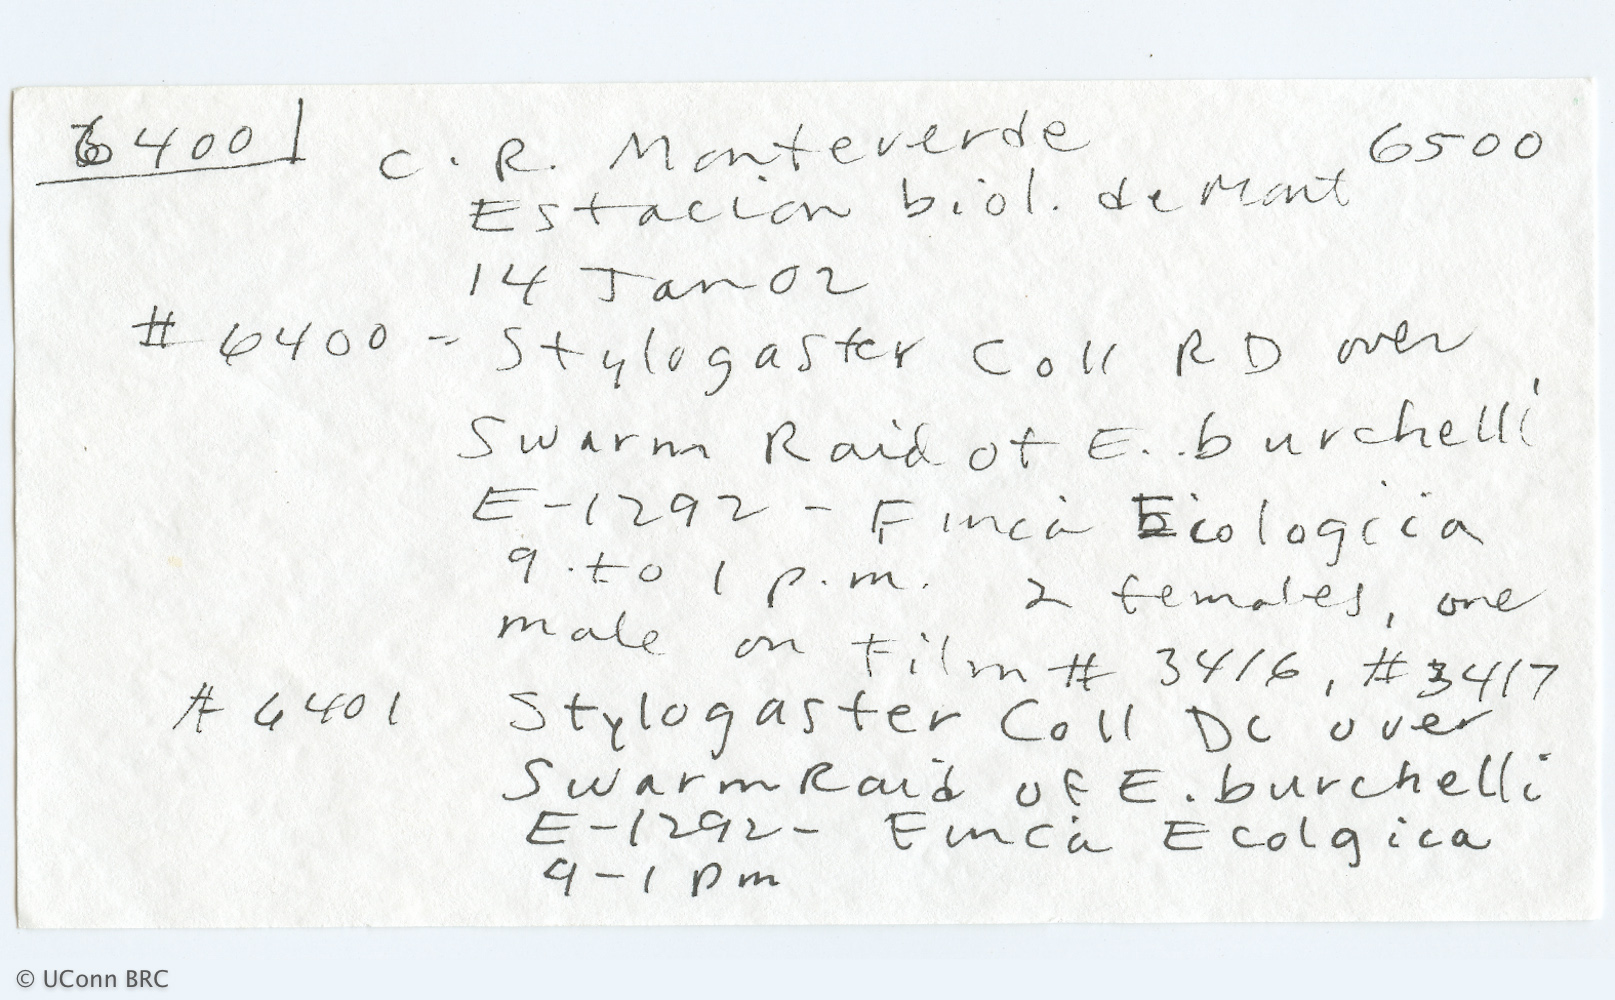 6400 C. R. Monteverde 6500
Estacion biol. de Mont
14 Jan 02
# 6400 - Stylogaster Coll RD over
Swarm Raid of E. burchelli,
E-1292 - Finca Eiologiia
9 to 1 p.m. 2 females, one
male on Film # 3416, # 3417
# 6401 Stylogaster Coll DC over
Swarm Raid of E. burchelli
E-1292 - Finca Ecolgica
9-1 pm
© UConn BRC